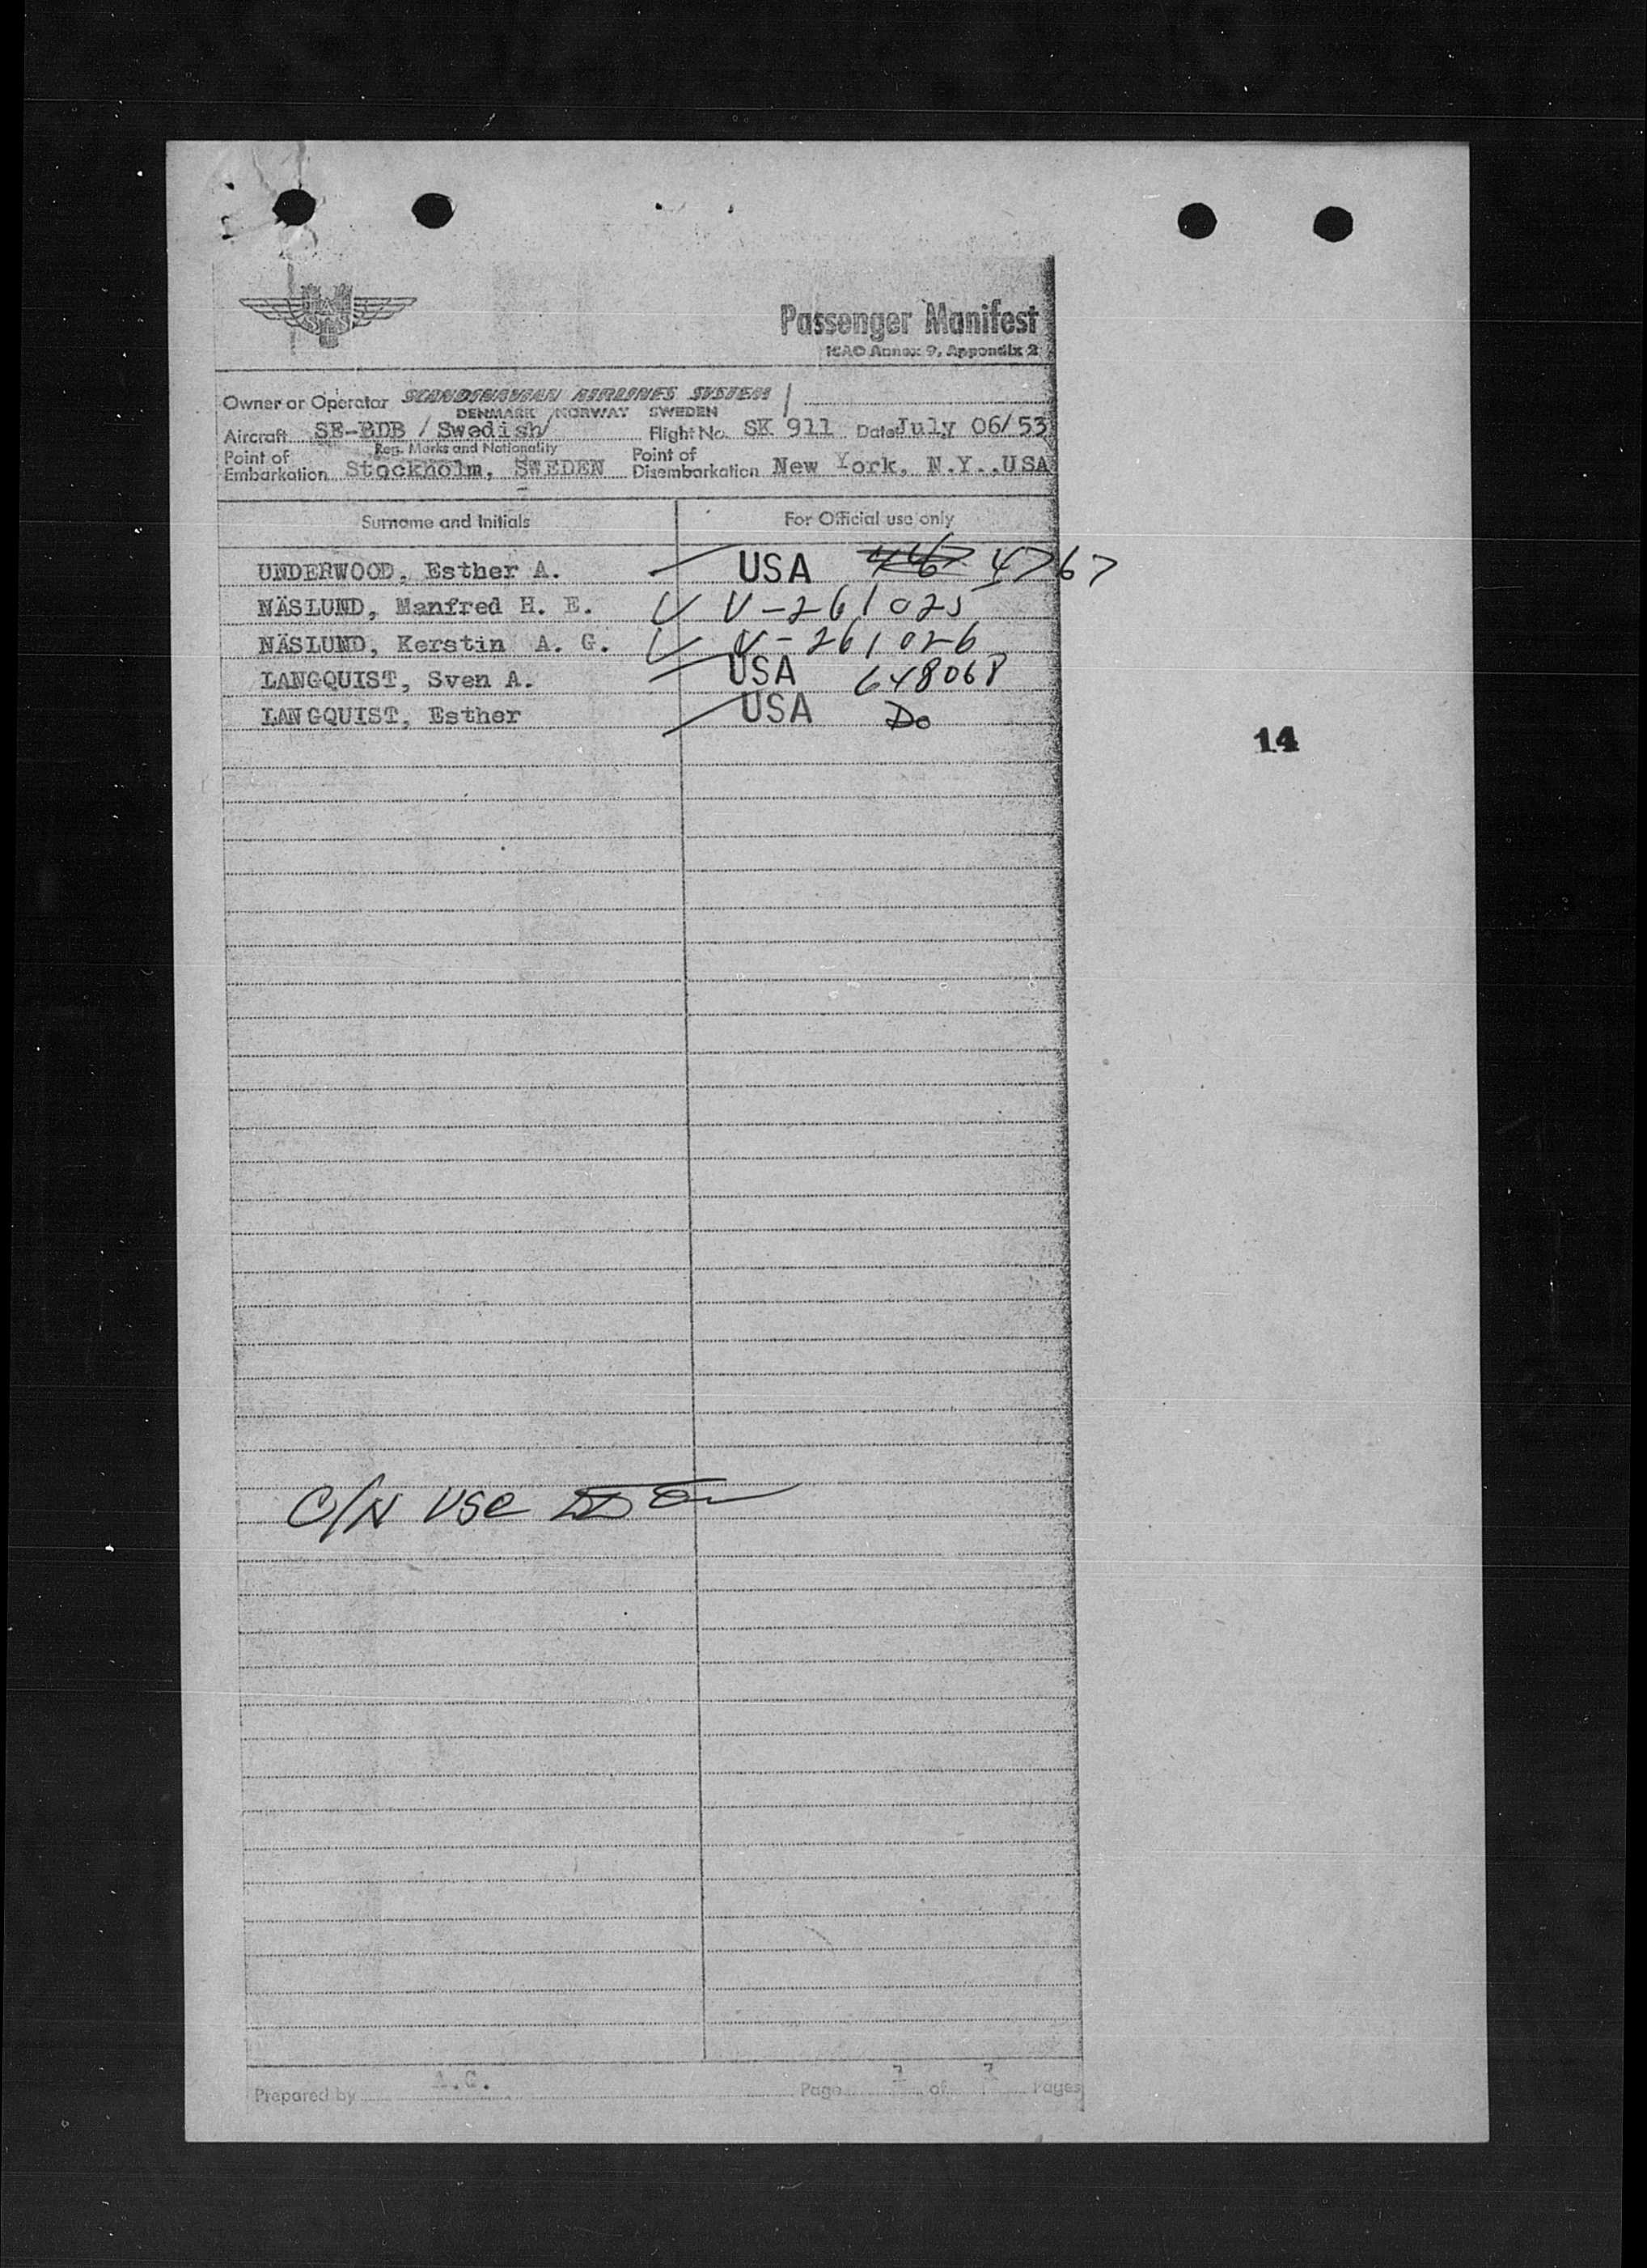 Passenger Manifest
ICAO Annex 9, Appendix 2
Owner or Operator SCANDINAVIAN AIRLINES SYSTEM
DENMARK NORWAY SWEDEN
Aircraft SE-BDB / Swedish/ Flight No. SK 911 Date July 06/53
Reg. Marks and Nationality
Point of Embarkation Stockholm, SWEDEN Point of Disembarkation New York, N.Y., USA
Surname and Initials For Official use only
UNDERWOOD, Esther A. USA 4767
NÄSLUND, Manfred H. E. V-261025
NÄSLUND, Kerstin A. G. V-261026
LANGQUIST, Sven A. USA 648068
LANGQUIST, Esther USA Do
14
C/N USC
Prepared by A.G. Page of Pages